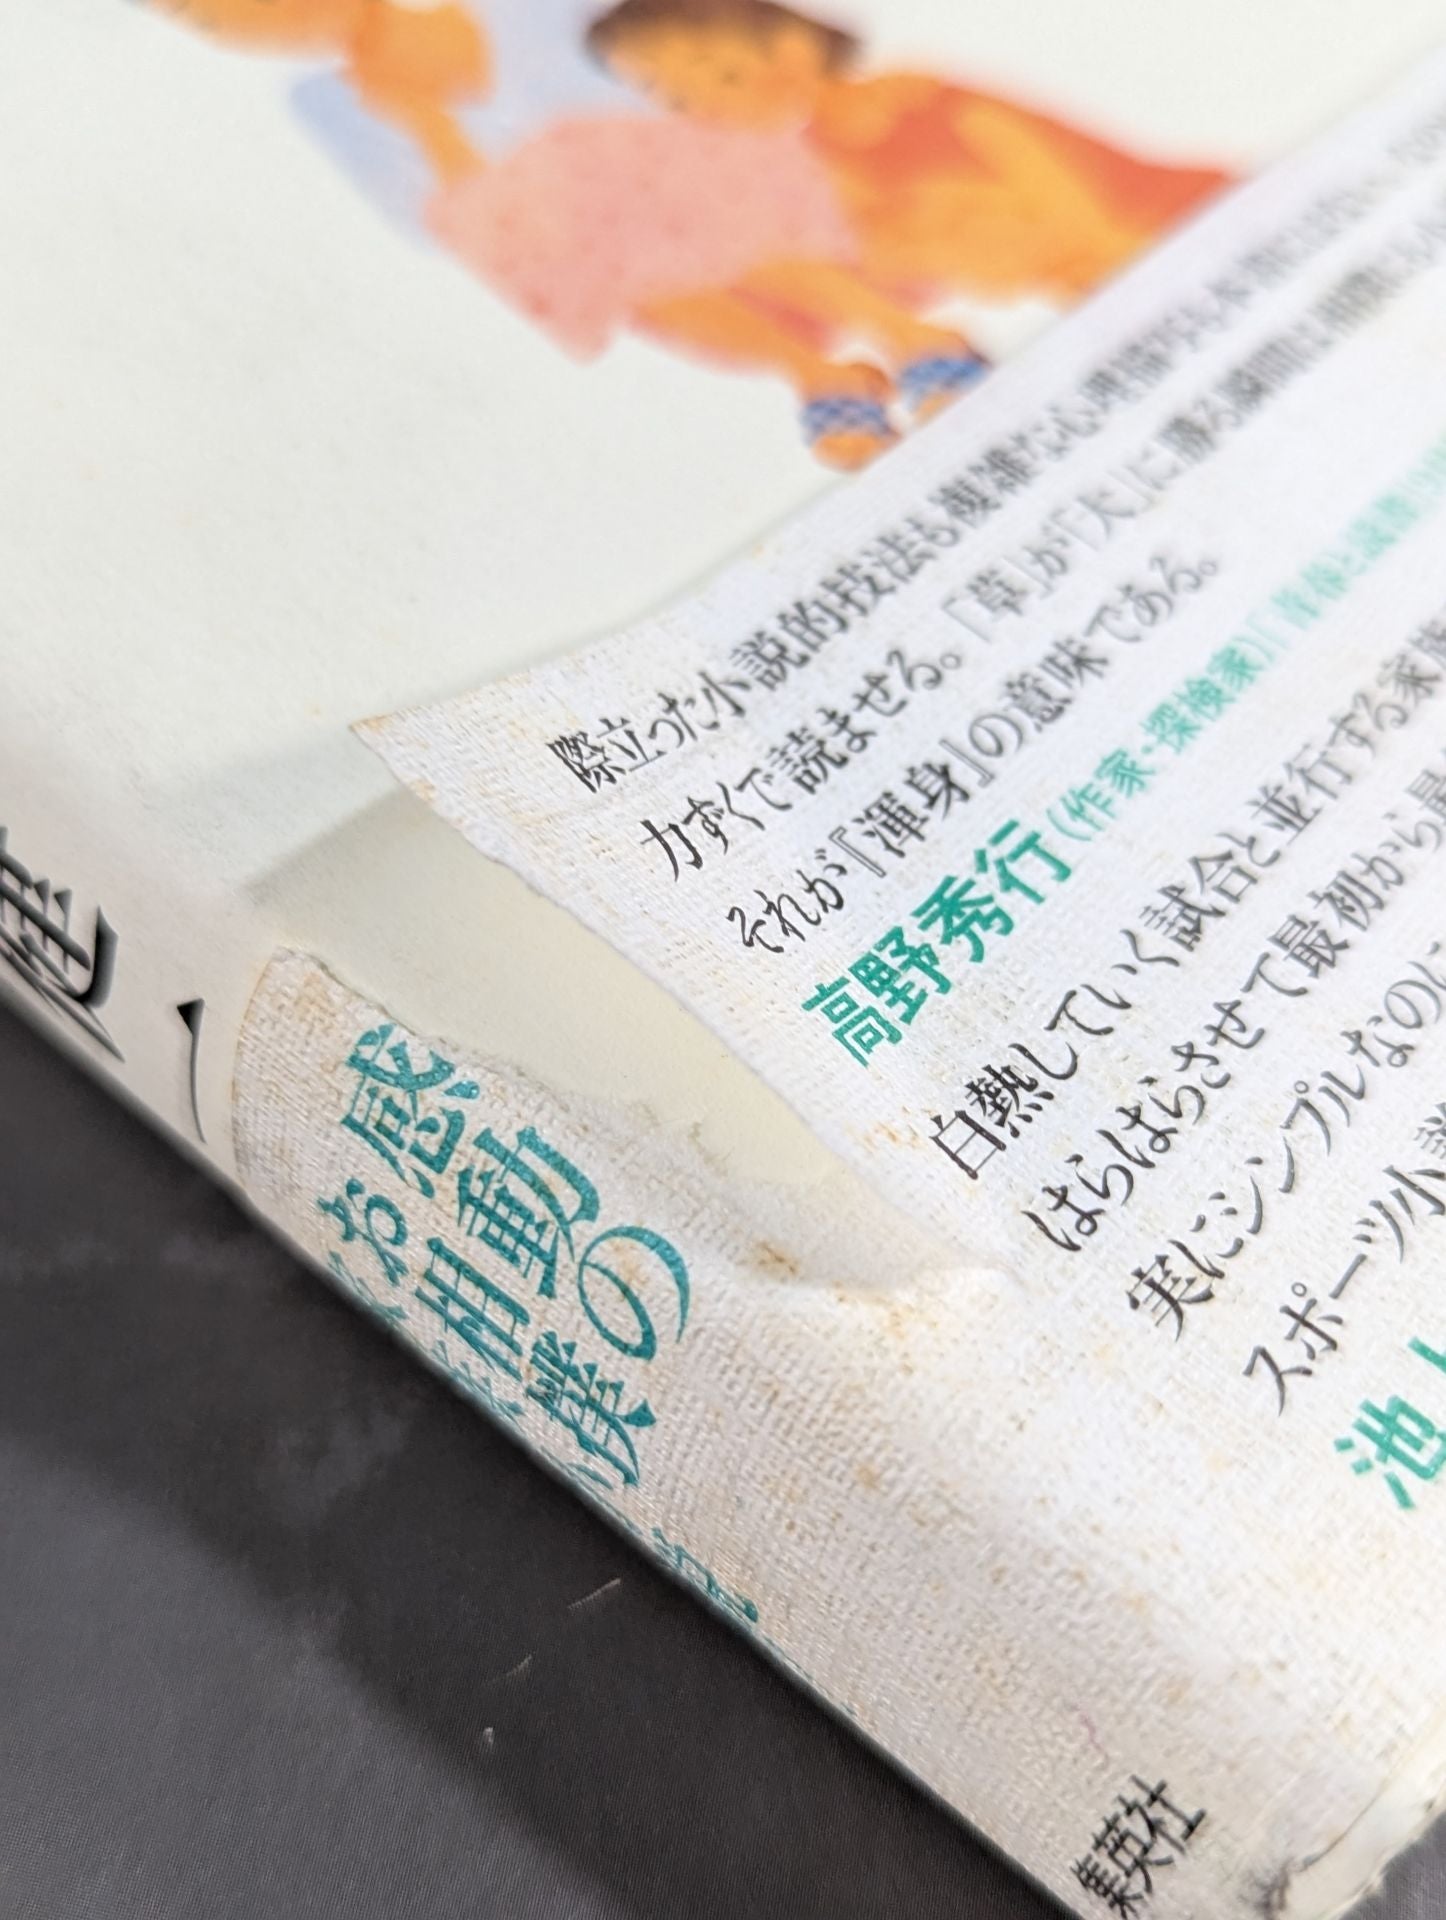 際立った小説的技法も複雑な心理描写も本書にはない。
力ずくで読ませる。「草」が「大」に勝る瞬間は
それが『渾身』の意味である。
高野秀行(作家・探検家)「青春と読書」
白熱していく試合と並行する家族
はらはらさせて最初から最
実にシンプルなのに
スポーツ小説
池上
健一
感動の
お相撲
集英社